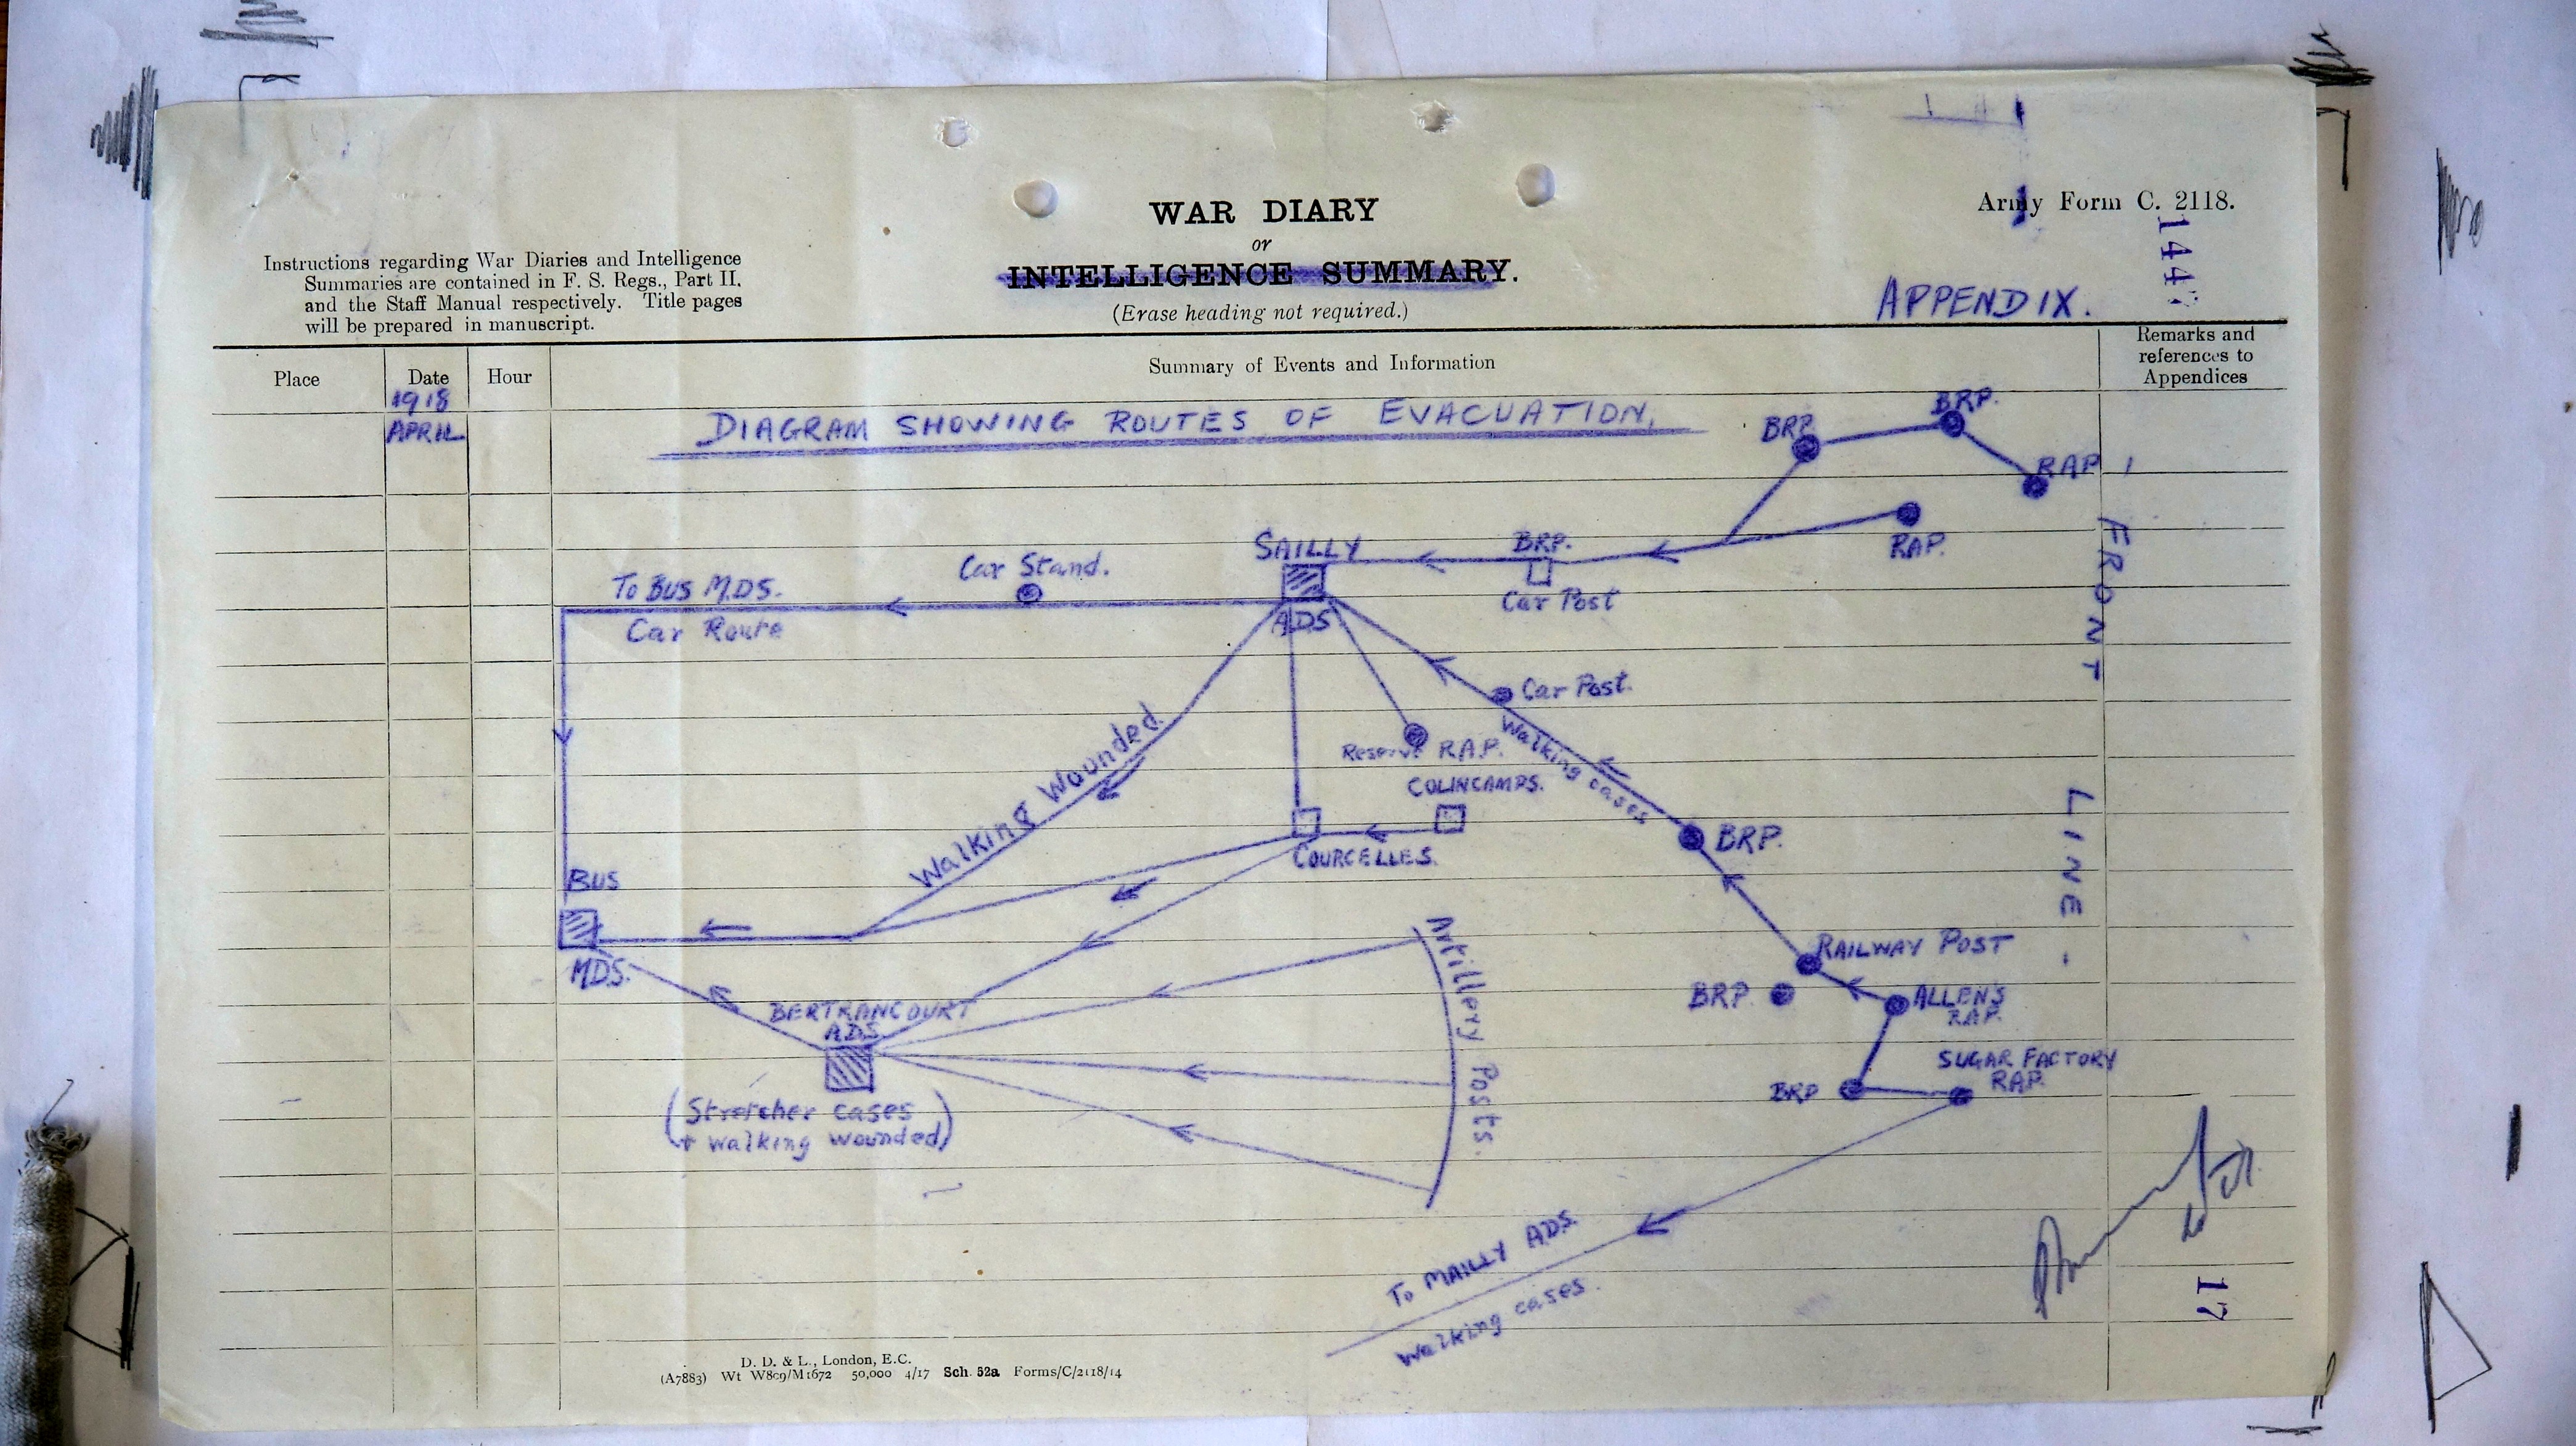 WAR DIARY
or
INTELLIGENCE SUMMARY.
(Erase heading not required.)
Army Form C. 2118.
144
Instructions regarding War Diaries and Intelligence
Summaries are contained in F. S. Regs., Part II,
and the Staff Manual respectively. Title pages
will be prepared in manuscript.
APPENDIX.
Place
Date
Hour
Summary of Events and Information
Remarks and
references to
Appendices
1918
APRIL
DIAGRAM SHOWING ROUTES OF EVACUATION.
BRP
BRP.
RAP
RAP.
FRONT
LINE
SAILLY
ADS
BRP.
Car Post
Car Stand.
To BUS M.D.S.
Car Route
Car Post.
Walking cases
Reserve R.A.P.
COLINCAMPS.
COURCELLES.
Walking Wounded
BRP.
BUS
MDS.
RAILWAY POST
BRP
ALLENS
RAP.
BERTRANCOURT
ADS
(Stretcher cases
+ walking wounded)
Artillery Posts.
SUGAR FACTORY
RAP.
BRP
To MAILLY ADS.
Walking cases.
17
D. D. & L., London, E.C.
(A7883) Wt W809/M1672 50,000 4/17 Sch. 52a Forms/C/2118/14